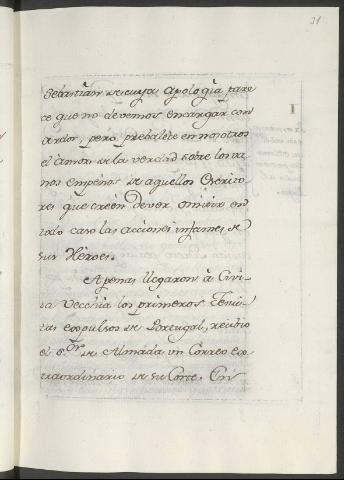 31
Sebastián de cuya Apologìa pare
ce que no devemos encargar con
ardor, pero prebalece en nosotros
el àmor de la verdad sobre los va
nos empeños de aquellos Escrito
res que creèn dever omitir en
todo caso las acciones infames de
sus Hèroes.
Apenas llegaron à Civi
ta Vecchia los primeros Jesui
tas expulsos de Portugal, recibio
el S.or de Almada un Correo Ex
traordinario de su Corte. En